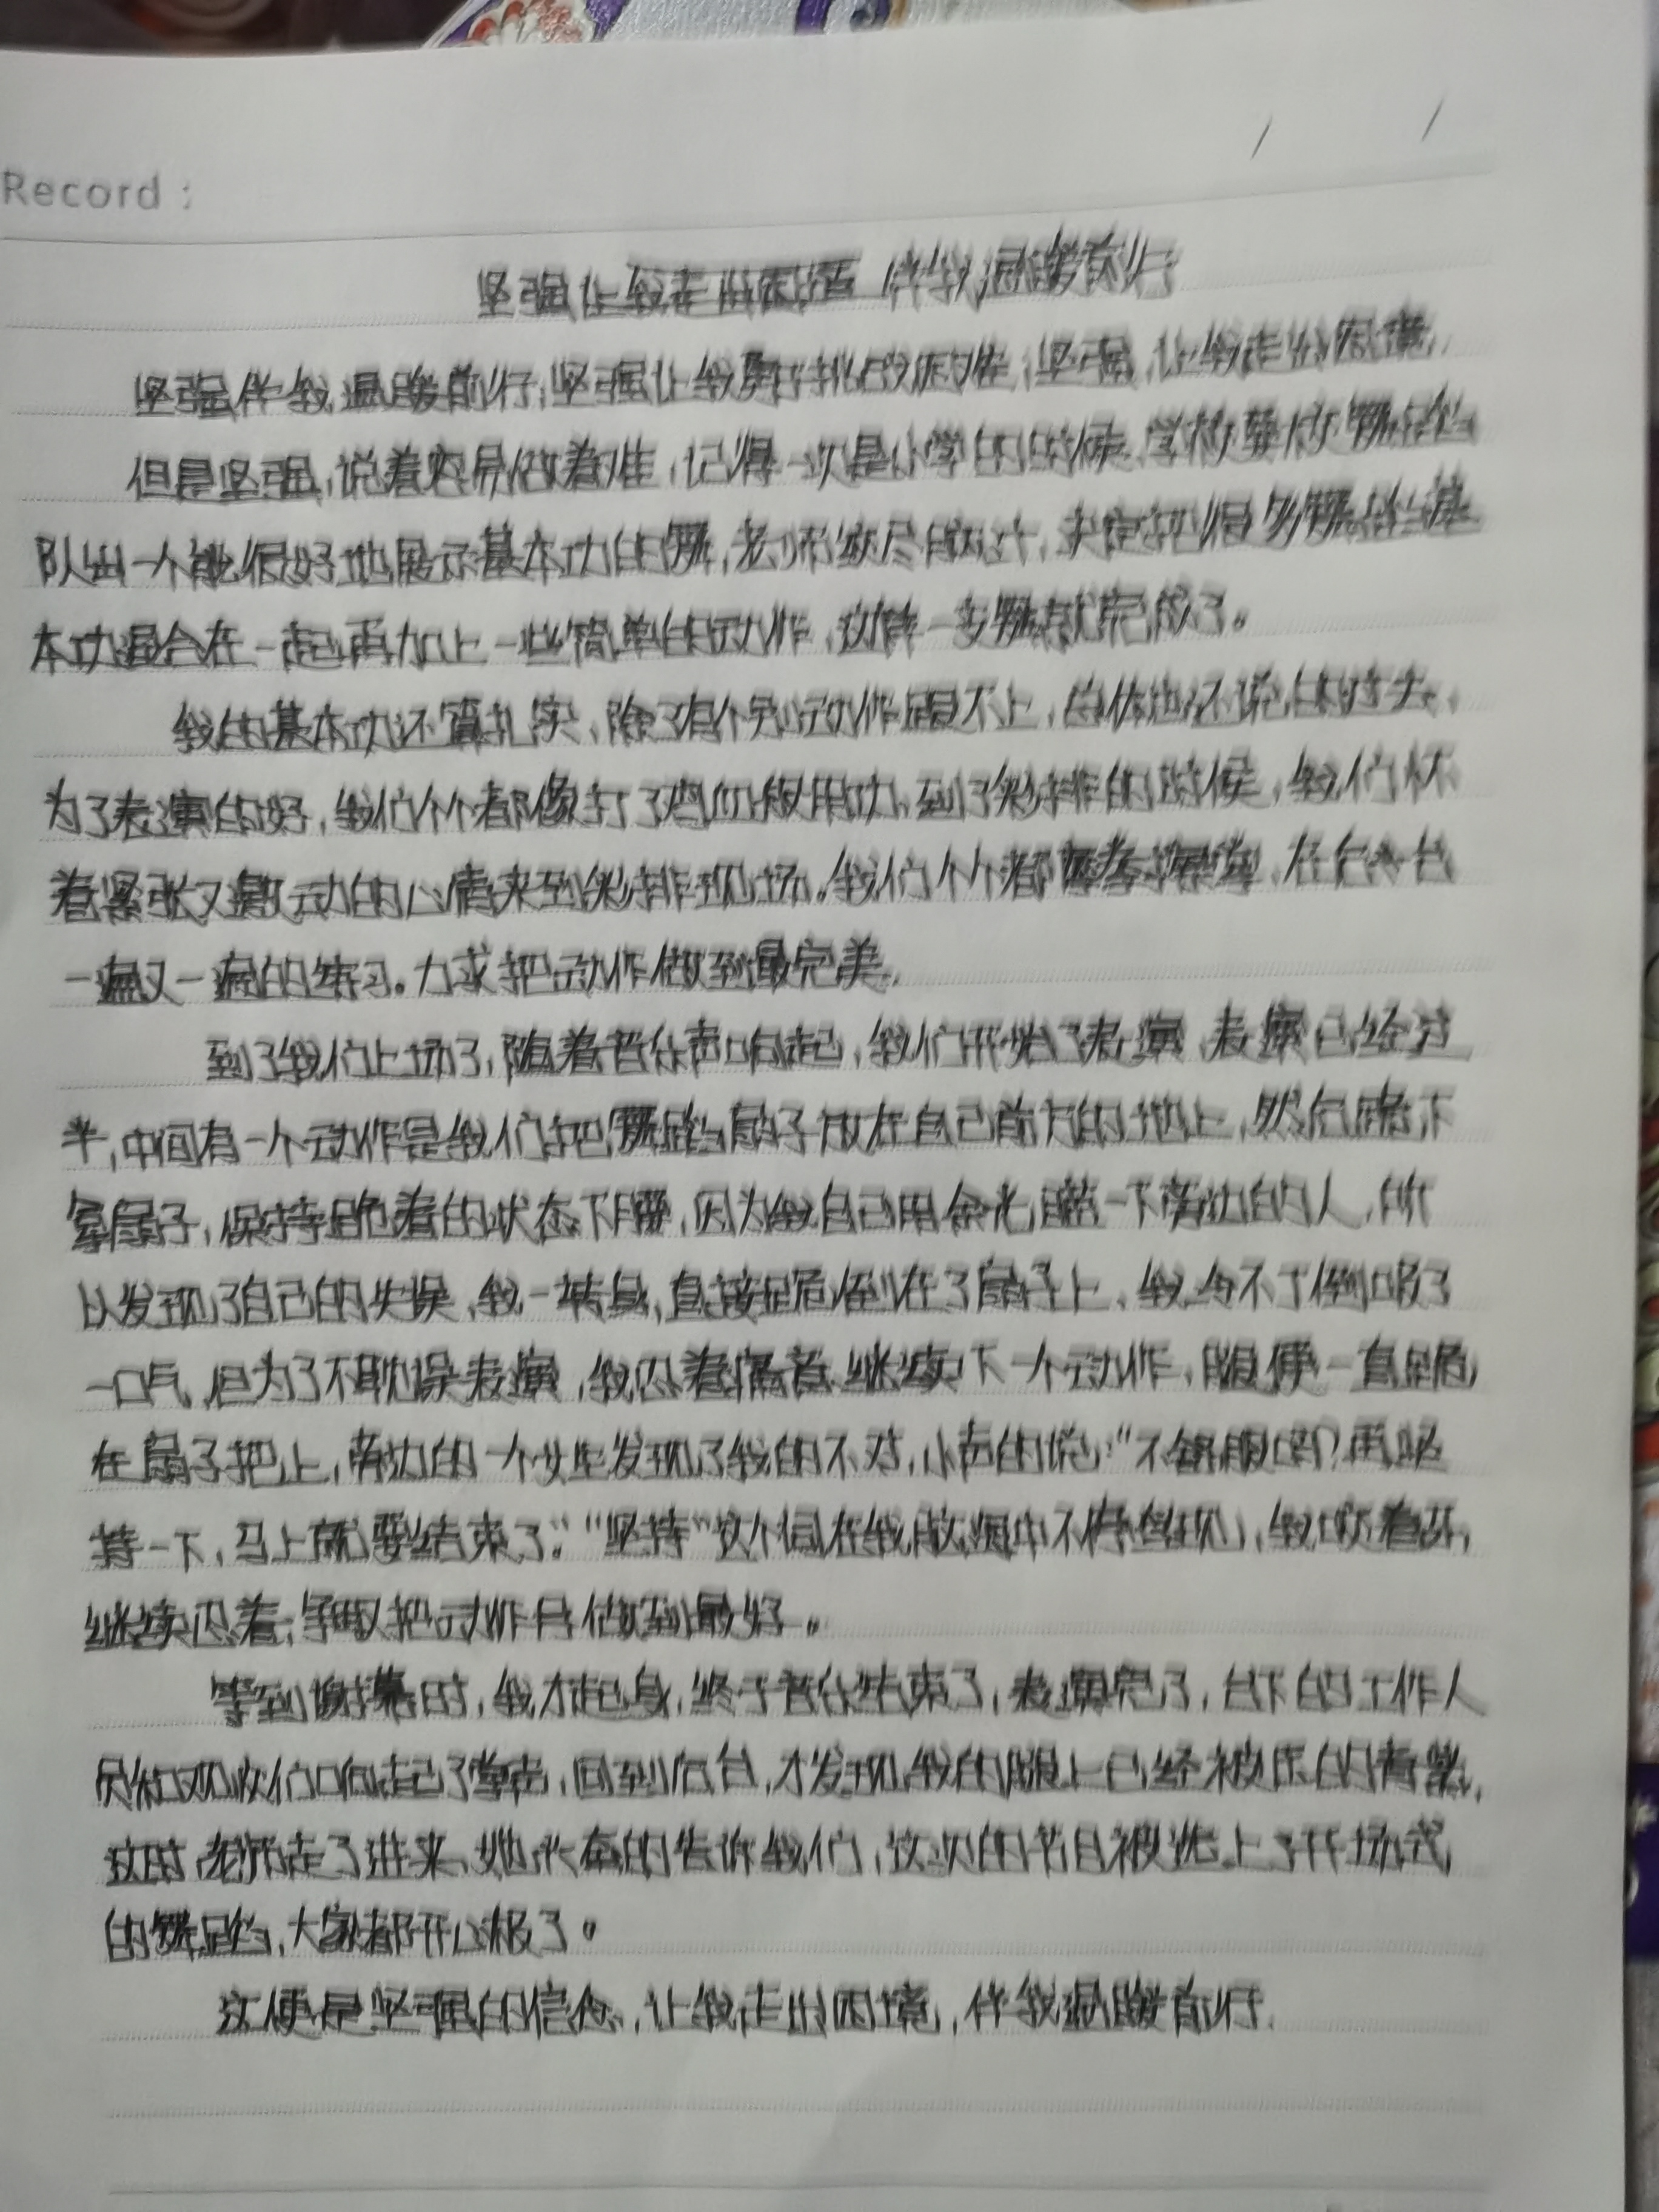 Record :
坚强让我走出困境 伴我温暖前行
坚强伴我温暖前行,坚强让我勇于挑战困难,坚强,让我走出困境,
但是坚强,说着容易做着难,记得一次是小学的时候,学校要校舞蹈
队出一个能很好地展示基本功的舞,老师绞尽脑汁,决定把很多舞蹈基
本功混合在一起再加上一些简单的动作,这样一支舞就完成了。
我的基本功还算扎实,除了有个别动作跟不上,总体也还说的过去,
为了表演的好,我们个个都像打了鸡血般用功,到了彩排的时候,我们怀
着紧张又激动的心情来到彩排现场。我们个个都摩拳擦掌,在台
一遍又一遍的练习。力求把动作做到最完美,
到了我们上场了,随着音乐声响起,我们开始了表演,表演已经过
半,中间有一个动作是我们把舞蹈扇子放在自己前方的地上,然后跪下
拿扇子,保持跪着的状态下腰,因为我自己用余光瞄一下旁边的人,所
以发现了自己的失误,我一转身,直接跪倒在了扇子上,我忍不了倒吸了
一口气,但为了不耽误表演,我忍着痛苦继续下一个动作,腿便一直跪
在扇子把上,旁边的一个女生发现了我的不对,小声的说:“不舒服吗?再坚
持一下,马上就要结束了。”“坚持”这个词在我脑海中不停出现,我咬着牙,
继续忍着,争取把动作做到最好。
等到谢幕时,我才起身,终于音乐结束了,表演完了,台下的工作人
员和观众们响起了掌声,回到后台,才发现我的腿上已经被压的青紫,
这时老师走了进来,她兴奋的告诉我们,这次的节目被选上了开场式
的舞蹈,大家都开心极了。
这便是坚强的信念,让我走出困境,伴我温暖前行.